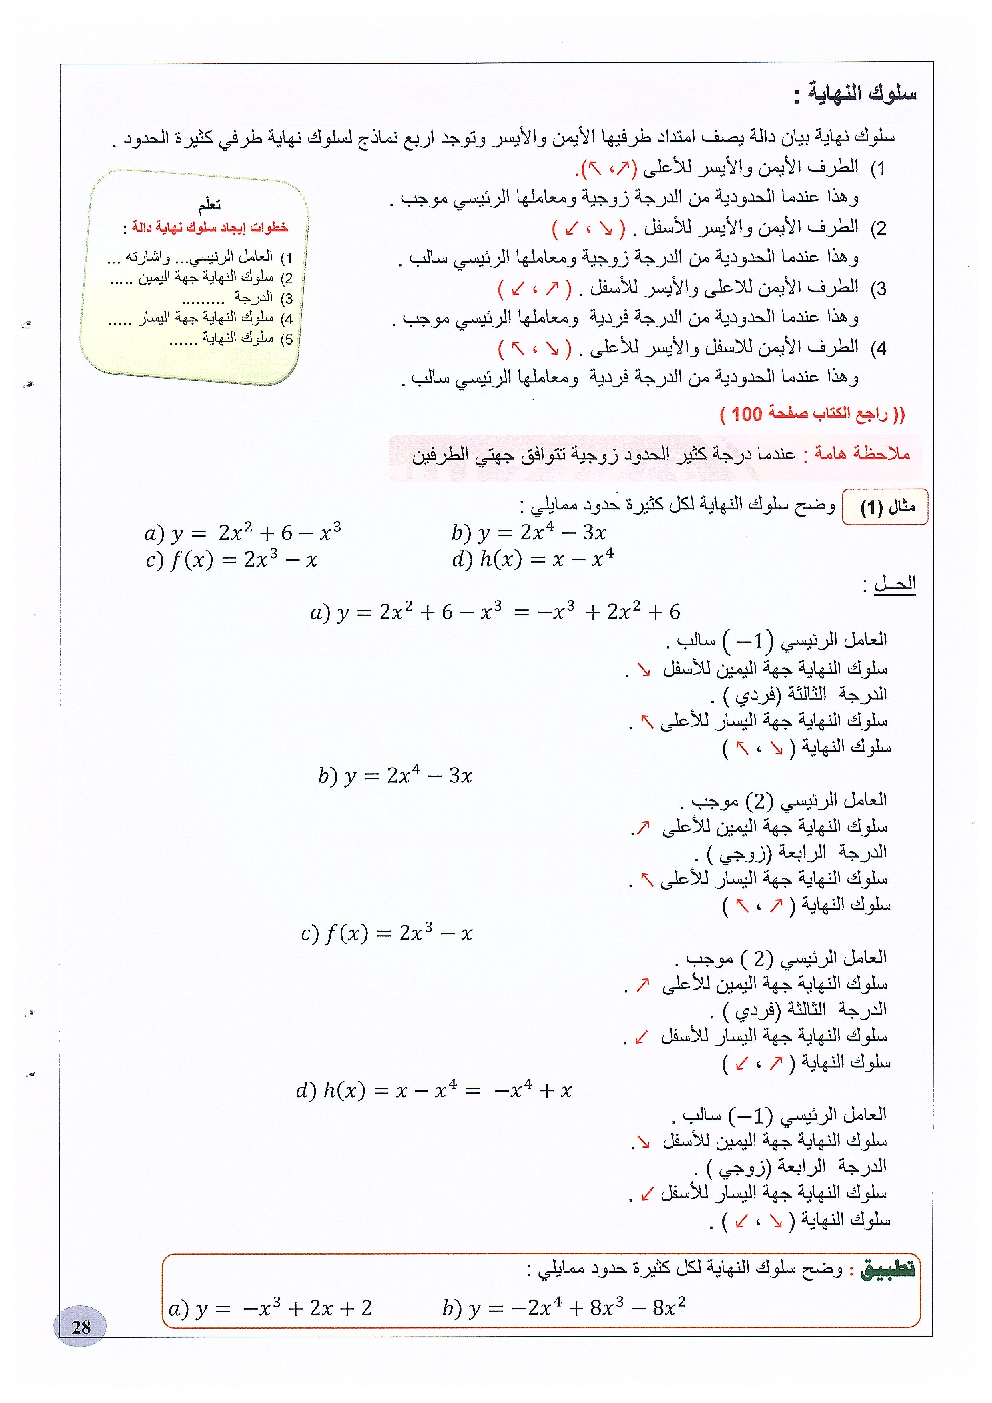 سلوك النهاية :
سلوك نهاية بيان دالة يصف امتداد طرفيها الأيمن والأيسر وتوجد اربع نماذج لسلوك نهاية طرفي كثيرة الحدود .
1) الطرف الأيمن والأيسر للأعلى (↗، ↖).
وهذا عندما الحدودية من الدرجة زوجية ومعاملها الرئيسي موجب .
2) الطرف الأيمن والأيسر للأسفل . ( ↘ ، ↙ )
وهذا عندما الحدودية من الدرجة زوجية ومعاملها الرئيسي سالب .
3) الطرف الأيمن للاعلى والأيسر للأسفل . ( ↗ ، ↙ )
وهذا عندما الحدودية من الدرجة فردية ومعاملها الرئيسي موجب .
4) الطرف الأيمن للاسفل والأيسر للأعلى . ( ↘ ، ↖ )
وهذا عندما الحدودية من الدرجة فردية ومعاملها الرئيسي سالب .
تعلم
خطوات إيجاد سلوك نهاية دالة :
1) العامل الرئيسي... واشارته ...
2) سلوك النهاية جهة اليمين .....
3) الدرجة .........
4) سلوك النهاية جهة اليسار .....
5) سلوك النهاية ......
(( راجع الكتاب صفحة 100 )
ملاحظة هامة : عندما درجة كثير الحدود زوجية تتوافق جهتي الطرفين
مثال (1) وضح سلوك النهاية لكل كثيرة حدود ممايلي :
a) y = 2x² + 6 − x³ b) y = 2x⁴ − 3x
c) f(x) = 2x³ − x d) h(x) = x − x⁴
الحـل :
a) y = 2x² + 6 − x³ = −x³ + 2x² + 6
العامل الرئيسي (1− ) سالب .
سلوك النهاية جهة اليمين للأسفل ↘ .
الدرجة الثالثة (فردي ) .
سلوك النهاية جهة اليسار للأعلى ↖ .
سلوك النهاية ( ↘ ، ↖ )
b) y = 2x⁴ − 3x
العامل الرئيسي (2) موجب .
سلوك النهاية جهة اليمين للأعلى ↗.
الدرجة الرابعة (زوجي ) .
سلوك النهاية جهة اليسار للأعلى ↖ .
سلوك النهاية ( ↗ ، ↖ )
c) f(x) = 2x³ − x
العامل الرئيسي (2 ) موجب .
سلوك النهاية جهة اليمين للأعلى ↗ .
الدرجة الثالثة (فردي ) .
سلوك النهاية جهة اليسار للأسفل ↙ .
سلوك النهاية ( ↗ ، ↙ )
d) h(x) = x − x⁴ = −x⁴ + x
العامل الرئيسي (1−) سالب .
سلوك النهاية جهة اليمين للأسفل ↘.
الدرجة الرابعة (زوجي ) .
سلوك النهاية جهة اليسار للأسفل ↙ .
سلوك النهاية ( ↘ ، ↙ ) .
تطبيق : وضح سلوك النهاية لكل كثيرة حدود ممايلي :
a) y = −x³ + 2x + 2 b) y = −2x⁴ + 8x³ − 8x²
28